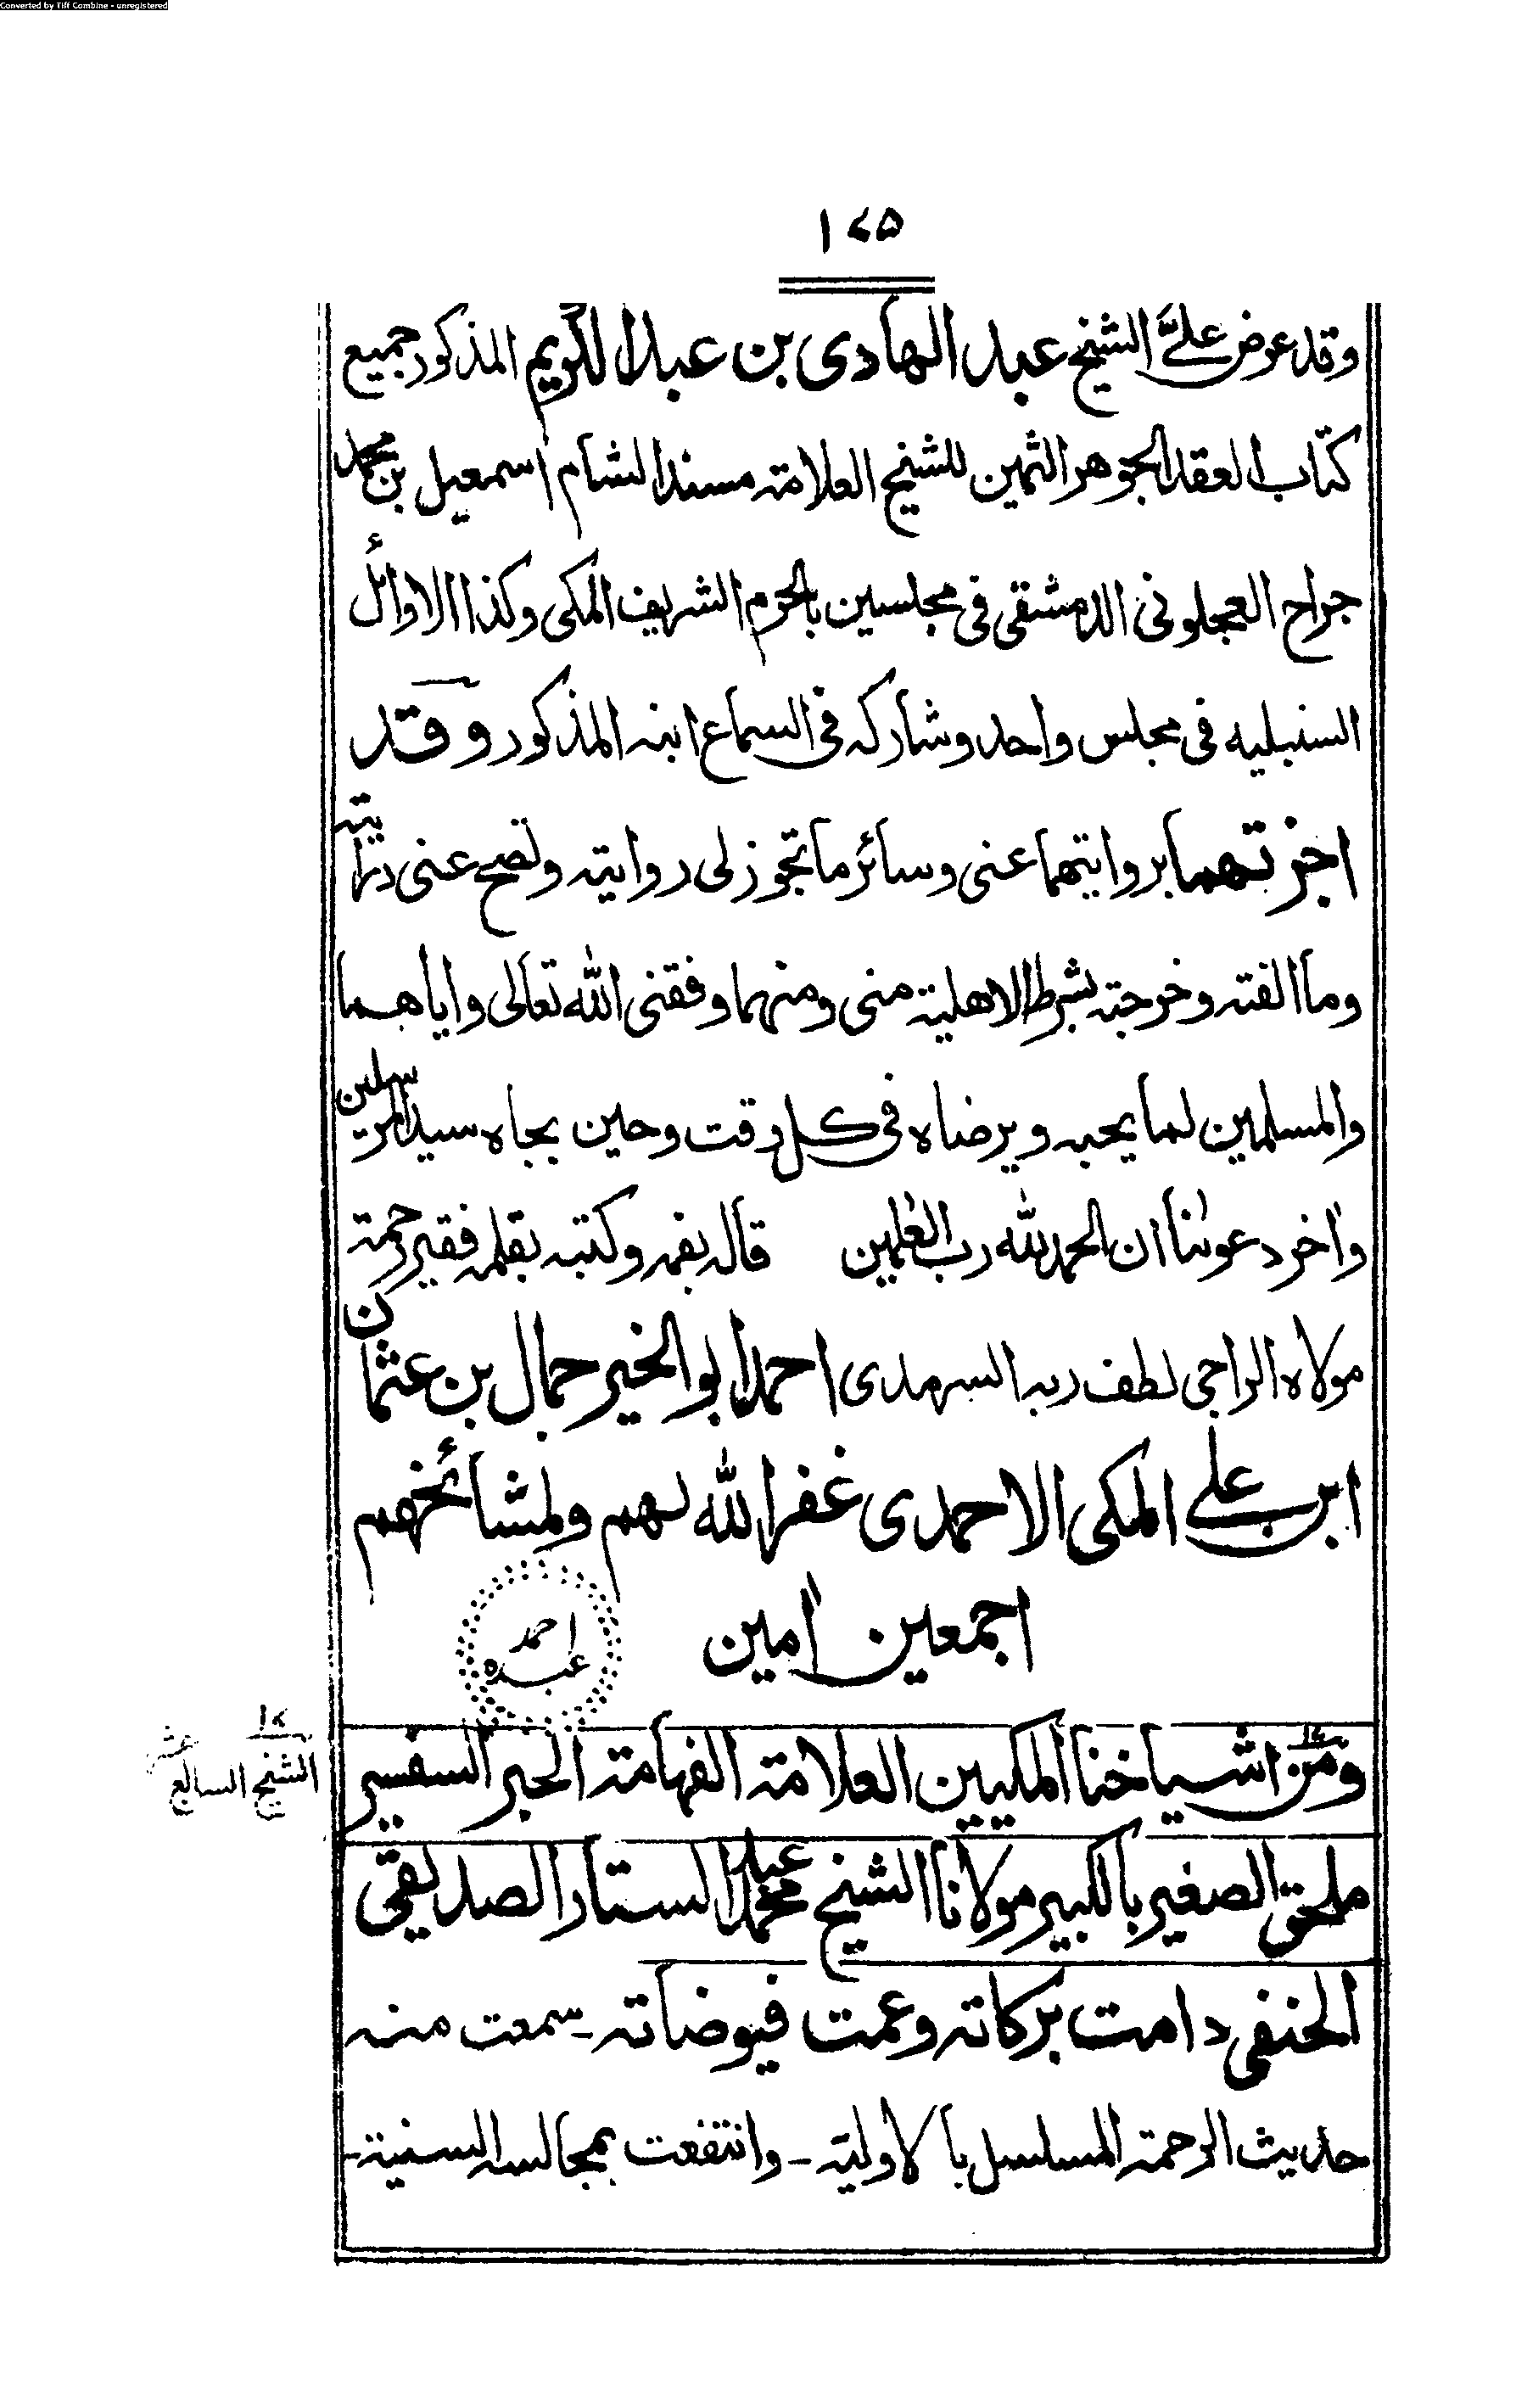 Converted by Tiff Combine - unregistered
١٧٥
وقد عرض علىّ الشيخ عبد الهادى بن عبد الكريم المذكور جميع
كتاب العقد الجوهر الثمين للشيخ العلامة مسند الشام اسمعيل بن محمد
جراح العجلونى الدمشقى فى مجلسين بالحرم الشريف المكى وكذا الاوائل
السنبليه فى مجلس واحد وشاركه فى السماع ابنه المذكور وقد
اجزتهما بروايتهما عنى وسائر ما تجوز لى روايته وتصح عنى درايته
وما الفته وخرجته بشرط الاهلية منى ومنهما وفقنى الله تعالى واياهما
والمسلمين لما يحبه ويرضاه فى كل وقت وحين بجاه سيد المرسلين
واٰخر دعوٰنا ان الحمد لله رب العٰلمين قاله بفمه وكتبه بقلمه فقير رحمة
مولاه الراجى لطف ربه السرمدى احمد ابو الخير جمال بن عثمان
ابن على المكى الاحمدى غفر الله لهم ولمشائخهم
اجمعين اٰمين
احمد
عبده
ومن اشياخنا المكيين العلامة الفهامة الحبر السفسير
١٧
الشيخ السابع عشر
ملحق الصغير بالكبير مولانا الشيخ محمد عبد الستار الصديقى
الحنفى دامت بركاته وعمت فيوضاته - سمعت منه
حديث الرحمة المسلسل بالاولية - وانتفعت بمجالسه السنية -